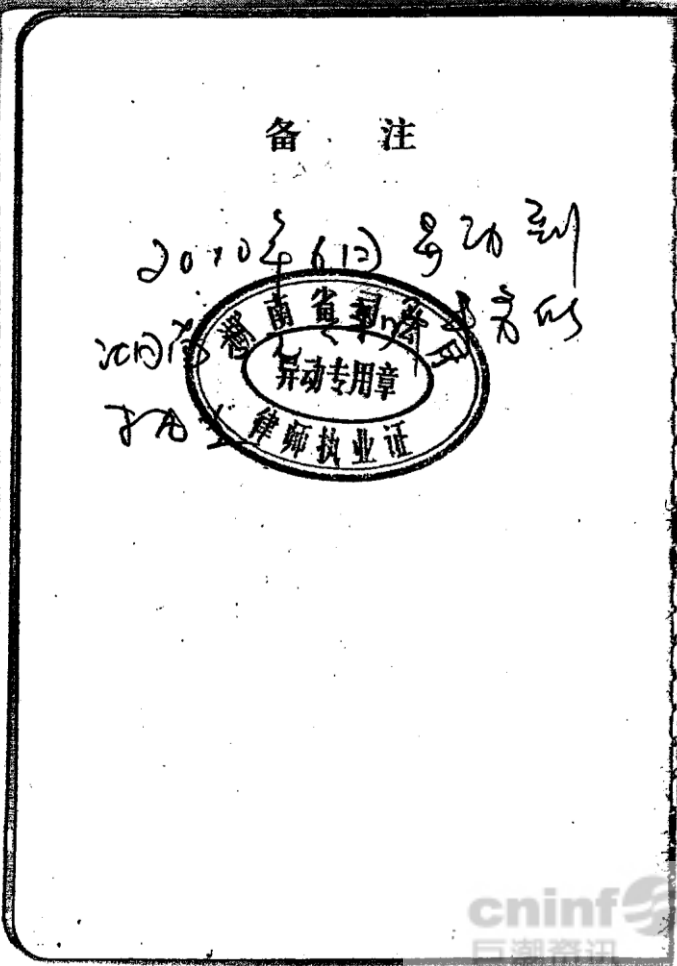 备 注
2010年6月异动到
湖南 律师事务所
执业
湖南省司法厅
异动专用章
律师执业证
cninf
巨潮资讯